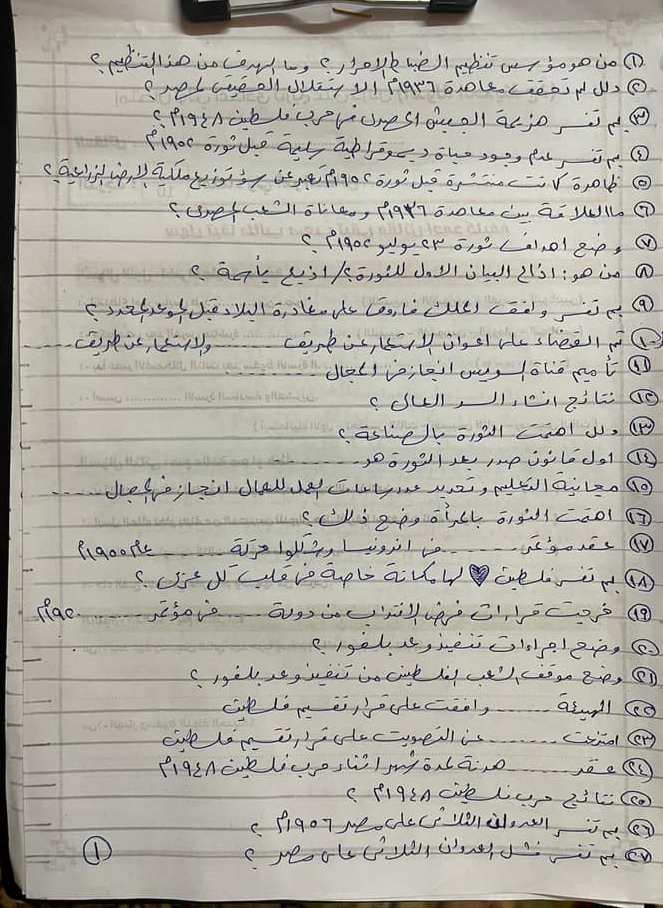 ① من هو مؤسس تنظيم الضباط الاحرار؟ وما الهدف من هذا التنظيم؟
② دلل لم تحقق معاهدة ١٩٣٦م الاستقلال الحقيقى لمصر؟
③ بم تفسر هزيمة الجيش المصرى فى حرب فلسطين ١٩٤٨م؟
④ بم تفسر عدم وجود حياة ديموقراطية سليمة قبل ثورة ١٩٥٢م
⑤ ظاهرة كانت منتشرة قبل ثورة ١٩٥٢م تعبر عن سوء توزيع ملكية الارض الزراعية؟
⑥ ما العلاقة بين معاهدة ١٩٣٦م ومعاناة الشعب المصرى؟
⑦ وضح اهداف ثورة ٢٣ يوليو ١٩٥٢م؟
⑧ من هو: اذاع البيان الاول للثورة؟/ اذيع بأسمة؟
⑨ بم تفسر وافق الملك فاروق على مغادرة البلاد قبل الموعد المحدد؟
⑩ تم القضاء على اعوان الاستعمار عن طريق ........ والاستعمار عن طريق ........
⑪ تأميم قناة السويس انجاز فى المجال ........
⑫ نتائج انشاء السد العالى؟
⑬ دلل اهتمت الثورة بالصناعة؟
⑭ اول قانون صدر بعد الثورة هو ........
⑮ مجانية التعليم وتحديد عدد ساعات العمل للعمال انجاز فى المجال ........
⑯ اهتمت الثورة بالمرأة وضح ذلك؟
⑰ عقد مؤتمر ........ فى اندونيسيا وشكلوا حركة ........ عام ١٩٥٥م
⑱ بم تفسر فلسطين ♥ لها مكانة خاصة فى قلب كل عربى؟
⑲ خرجت قرارات فرض الانتداب من دولة ........ فى مؤتمر ........ ١٩٢٠م
⑳ وضح اجراءات تنفيذ وعد بلفور؟
㉑ وضح موقف الشعب الفلسطينى من تنفيذ وعد بلفور؟
㉒ الهيئة ........ وافقت على قرار تقسيم فلسطين
㉓ امتنعت ........ عن التصويت على قرار تقسيم فلسطين
㉔ عقد ........ هدنة لمدة شهر اثناء حرب فلسطين ١٩٤٨م
㉕ نتائج حرب فلسطين ١٩٤٨م؟
㉖ بم تفسر العدوان الثلاثى على مصر ١٩٥٦م؟
㉗ بم تفسر فشل العدوان الثلاثى على مصر؟
①